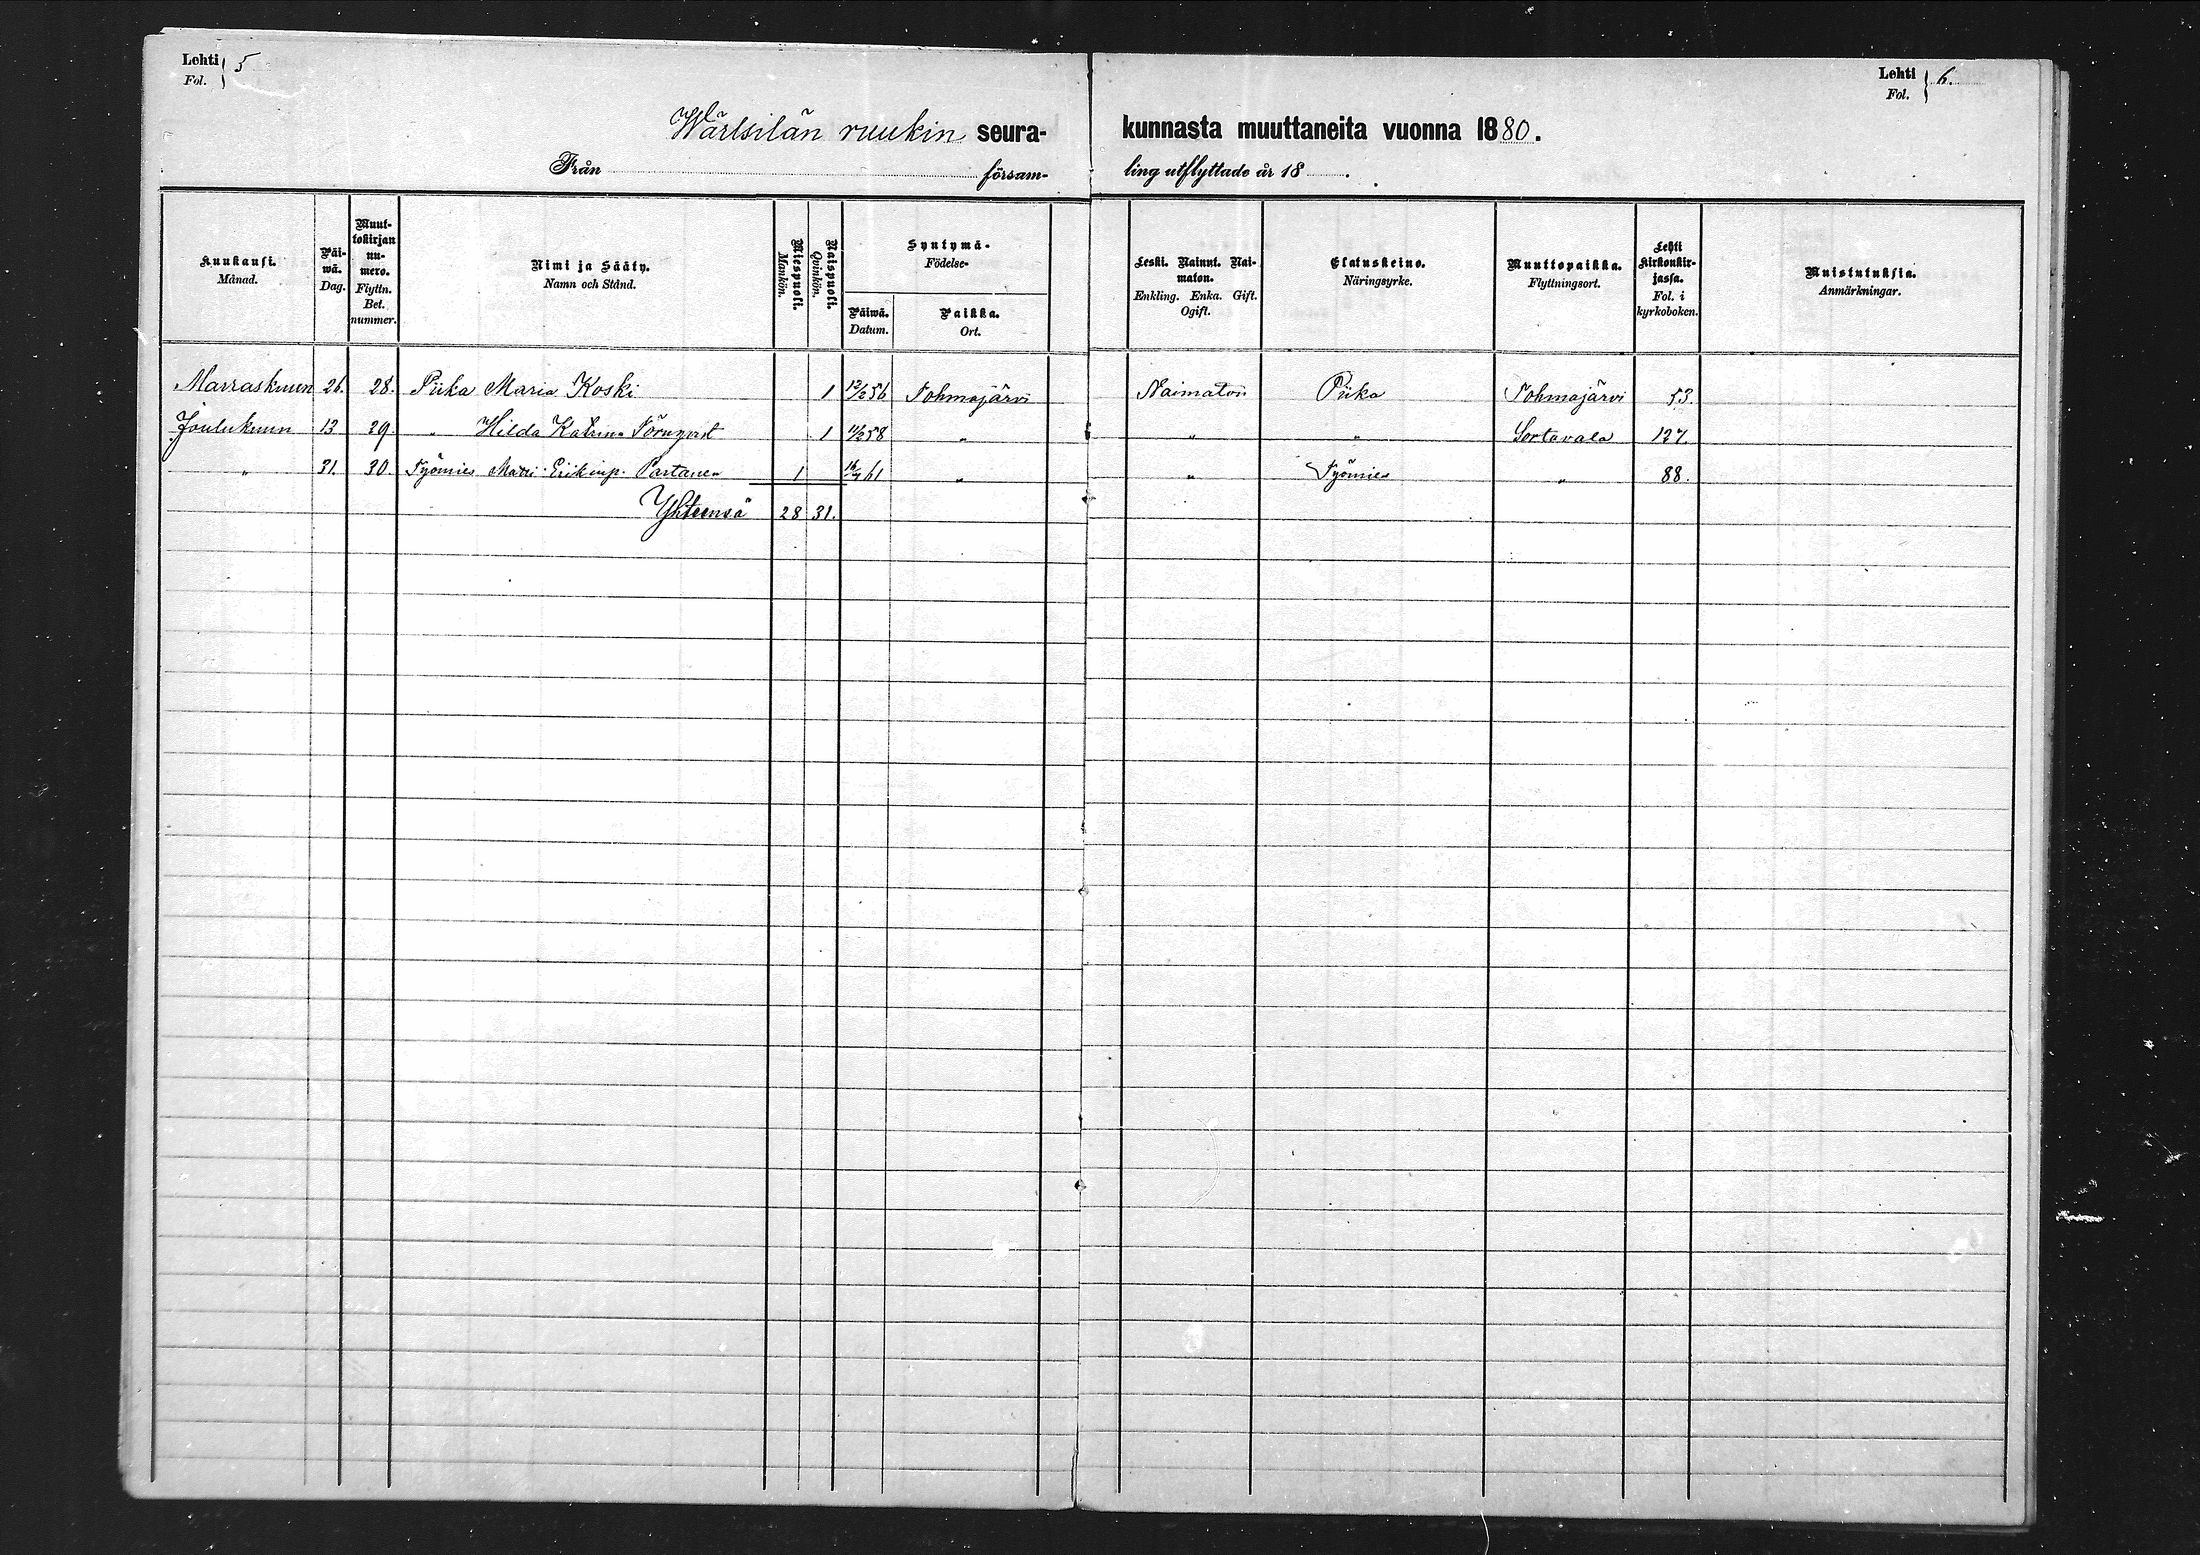 Lehti Fol. } 5
Lehti Fol. } 6.
Wärtsilän ruukin seura- kunnasta muuttaneita vuonna 1880.
Från försam- ling utflyttade år 18 .
Kuukausi. Månad.
Päi-wä. Dag.
Muut-tokirjan nu-mero. Flyttn. Bet. nummer.
Nimi ja Sääty. Namn och Stånd.
Miespuoli. Mankön.
Naispuoli. Qvinkön.
Syntymä- Födelse-
Päiwä. Datum.
Paikka. Ort.
Leski. Nainut. Nai-maton. Enkling. Enka. Gift. Ogift.
Elatuskeino. Näringsyrke.
Muuttopaikka. Flyttningsort.
Lehti Kirkonkir-jassa. Fol. i kyrkoboken.
Muistutuksia. Anmärkningar.
Marraskuun 26. 28. Piika Maria Koski 1 12/2 56 Tohmajärvi Naimatoin Piika Tohmajärvi 53.
Joulukuun 13 29. „ Hilda Katrina Törnqvist 1 11/2 58 „ „ „ Sortavala 127.
„ 31. 30. Työmies Matti Erikinp. Partanen 1 16/4 61 „ „ Työmies „ 88.
Yhteensä 28 31.